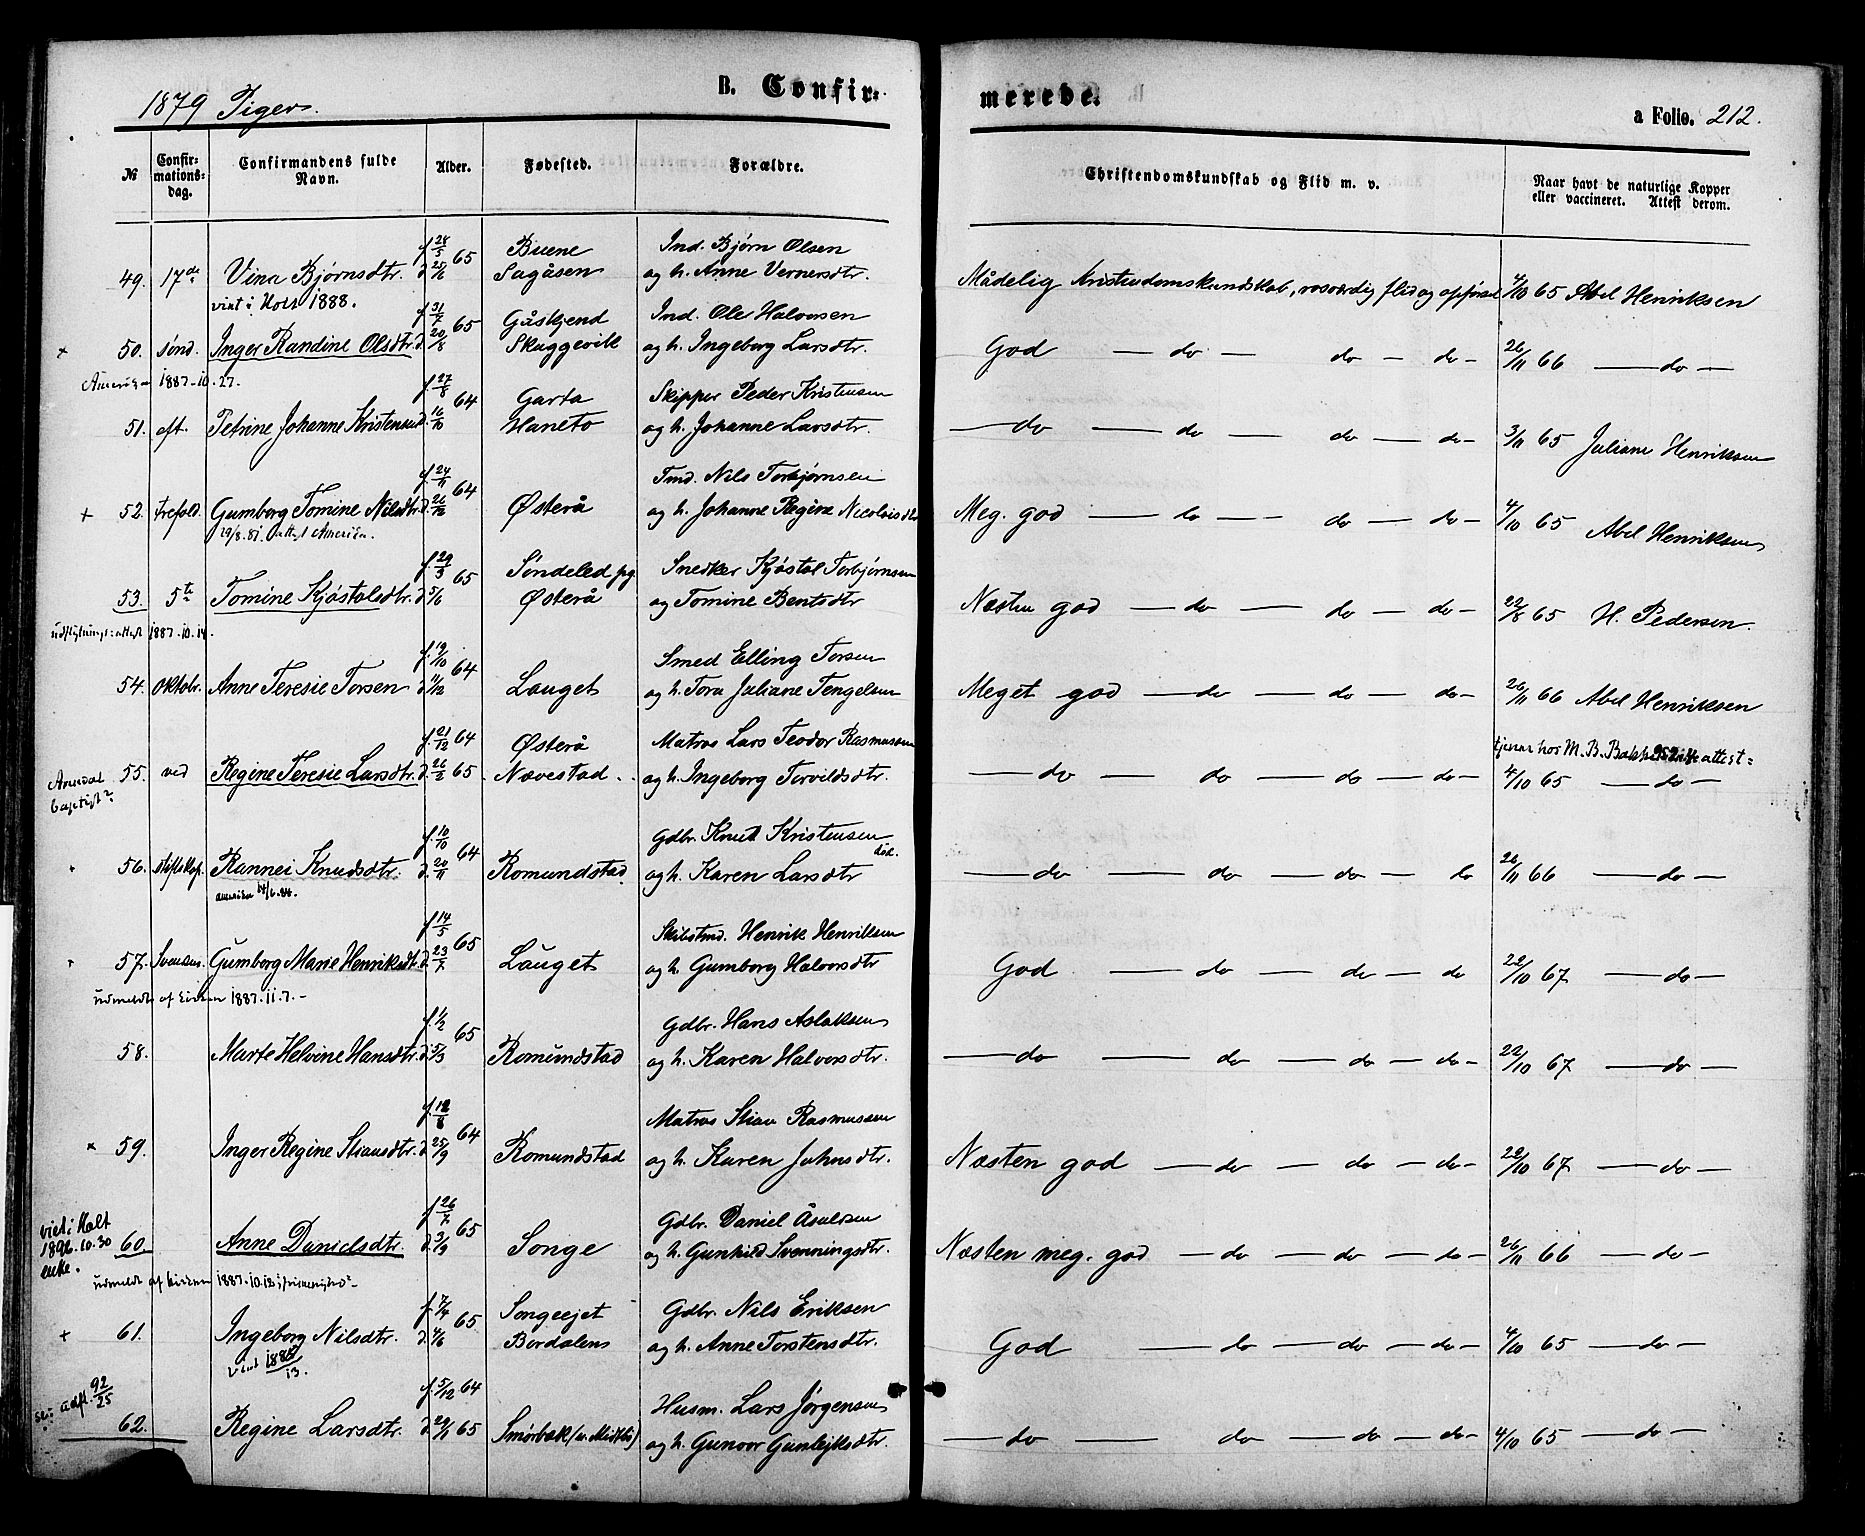 1879 Piger.
B. Confir-
merede.
a Folio. 212.
№
Confir-
mations-
dag.
Confirmandens fulde
Navn.
Alder.
Fødested.
Forældre.
Christendomskundskab og Flid m. v.
Naar havt de naturlige Kopper
eller vaccineret. Attest derom.
49. 17de Vina Bjørnsdtr. f. 24/5 65 d. 25/6 Buene Sagåsen Ind. Bjørn Olsen
og h. Anne Vernersdtr. Mådelig Kristendomskundskab, rosværdig flid og opførsel 4/10 65 Abel Henriksen
viet i Holt 1888.
+ 50. sønd. Inger Randine Olsdtr. f. 31/7 65 d. 20/8 Gåskjend Skaggevik Ind. Ole Halvorsen
og h. Ingeborg Larsdtr. God — do — do — do — 26/11 66 — do —
Amerika 1887-10.27.
51. eft. Petrine Johanne Kristensen f. 27/8 64 d. 16/10 Garta Haneto Skipper Peder Kristensen
og h. Johanne Larsdtr. — do — do — do — do — 3/11 65 Juliane Henriksen
+ 52. trefold. Gumborg Tomine Nilsdtr. f. 24/11 64 d. 26/12 Østerå Tmd. Nils Torbjørnsen
og h. Johanne Regine Nicolaisdtr. Meg. god — do — do — do — 4/10 65 Abel Henriksen
19/8.81. attest Amerika.
53. 5te Tomine Kjøstolsdtr. f. 29/3 65 d. 5/6 Søndeled pg. Østerå Snedker Kjøstol Torbjørnsen
og Tomine Bentsdtr Næsten god — do — do — do — 22/8 65 H. Pedersen.
udflytnings-attest 1887.10.14.
54. Oktobr. Anne Teresie Torsen f. 19/10 64 d. 11/12 Lauget Smed Elling Torsen
og h. Tora Juliane Tengelsen Meget god — do — do — do — 26/11 66 Abel Henriksen
55. ved Regine Teresie Larsdtr. f. 21/12 64 d. 26/2 65 Østerå Nævestad. Matros Lars Teodor Rasmussen
og h. Ingeborg Torvildsdtr. — do — do — do — do — 4/10 65 — do —
Arendal
baptist?
tjener hos M. B.
+ 56. Rannei Knudsdtr. f. 10/10 64 d. 20/11 Romundstad. Gdbr. Knud Kristensen
og h. Karen Larsdtr — do — do — do — do 26/11 66 — do —
amerika 14/6.84.
+ 57. Svensens. Gumborg Marie Henriksdt. f. 14/5 65 d. 23/7 Lauget Skibstmd. Henrik Henriksen
og h. Gumborg Halvorsdtr God — do — do — do 22/10 67 — do —
udmeldt af kirken 1887.11.7.-
58. Marte Helvine Hansdtr. f. 1/2 65 d. 5/3 Romundstad Gdbr. Hans Aslaksen
og h. Karen Halvorsdtr. — do — do — do — do — 22/10 67 — do —
× 59. Inger Regine Stiansdtr. f. 12/8 64 d. 25/9 Romundstad Matros Stian Rasmussen
og h. Karen Johnsdtr. Næsten god — do — do — do — 22/10 67 — do —
viet i Holt
10.30
enke.
60. Anne Danielsdtr. f. 26/7 65 d. 3/9 Songe Gdbr. Daniel Åsulvsen
og h. Gunhild Svenningsdtr. Næsten meg. god — do — do — do — 26/11 66 — do —
udmeldt af kirken 1887.10.12
+ 61. Ingeborg Nilsdtr. f. 7/4 65. d. 4/6 Songeejet Bordalens Gdbr. Nils Eriksen
og h. Anne Torstensdtr. God — do — do — do — 4/10 65 — do —
62. Regine Larsdtr. f. 5/12 64 d. 29/1 65 Smørbæk Husm. Lars Jørgensen
og h. Gunvor Gunlejksdtr. — do — do — do — do — 4/10 65 — do —
udfl. 92/25